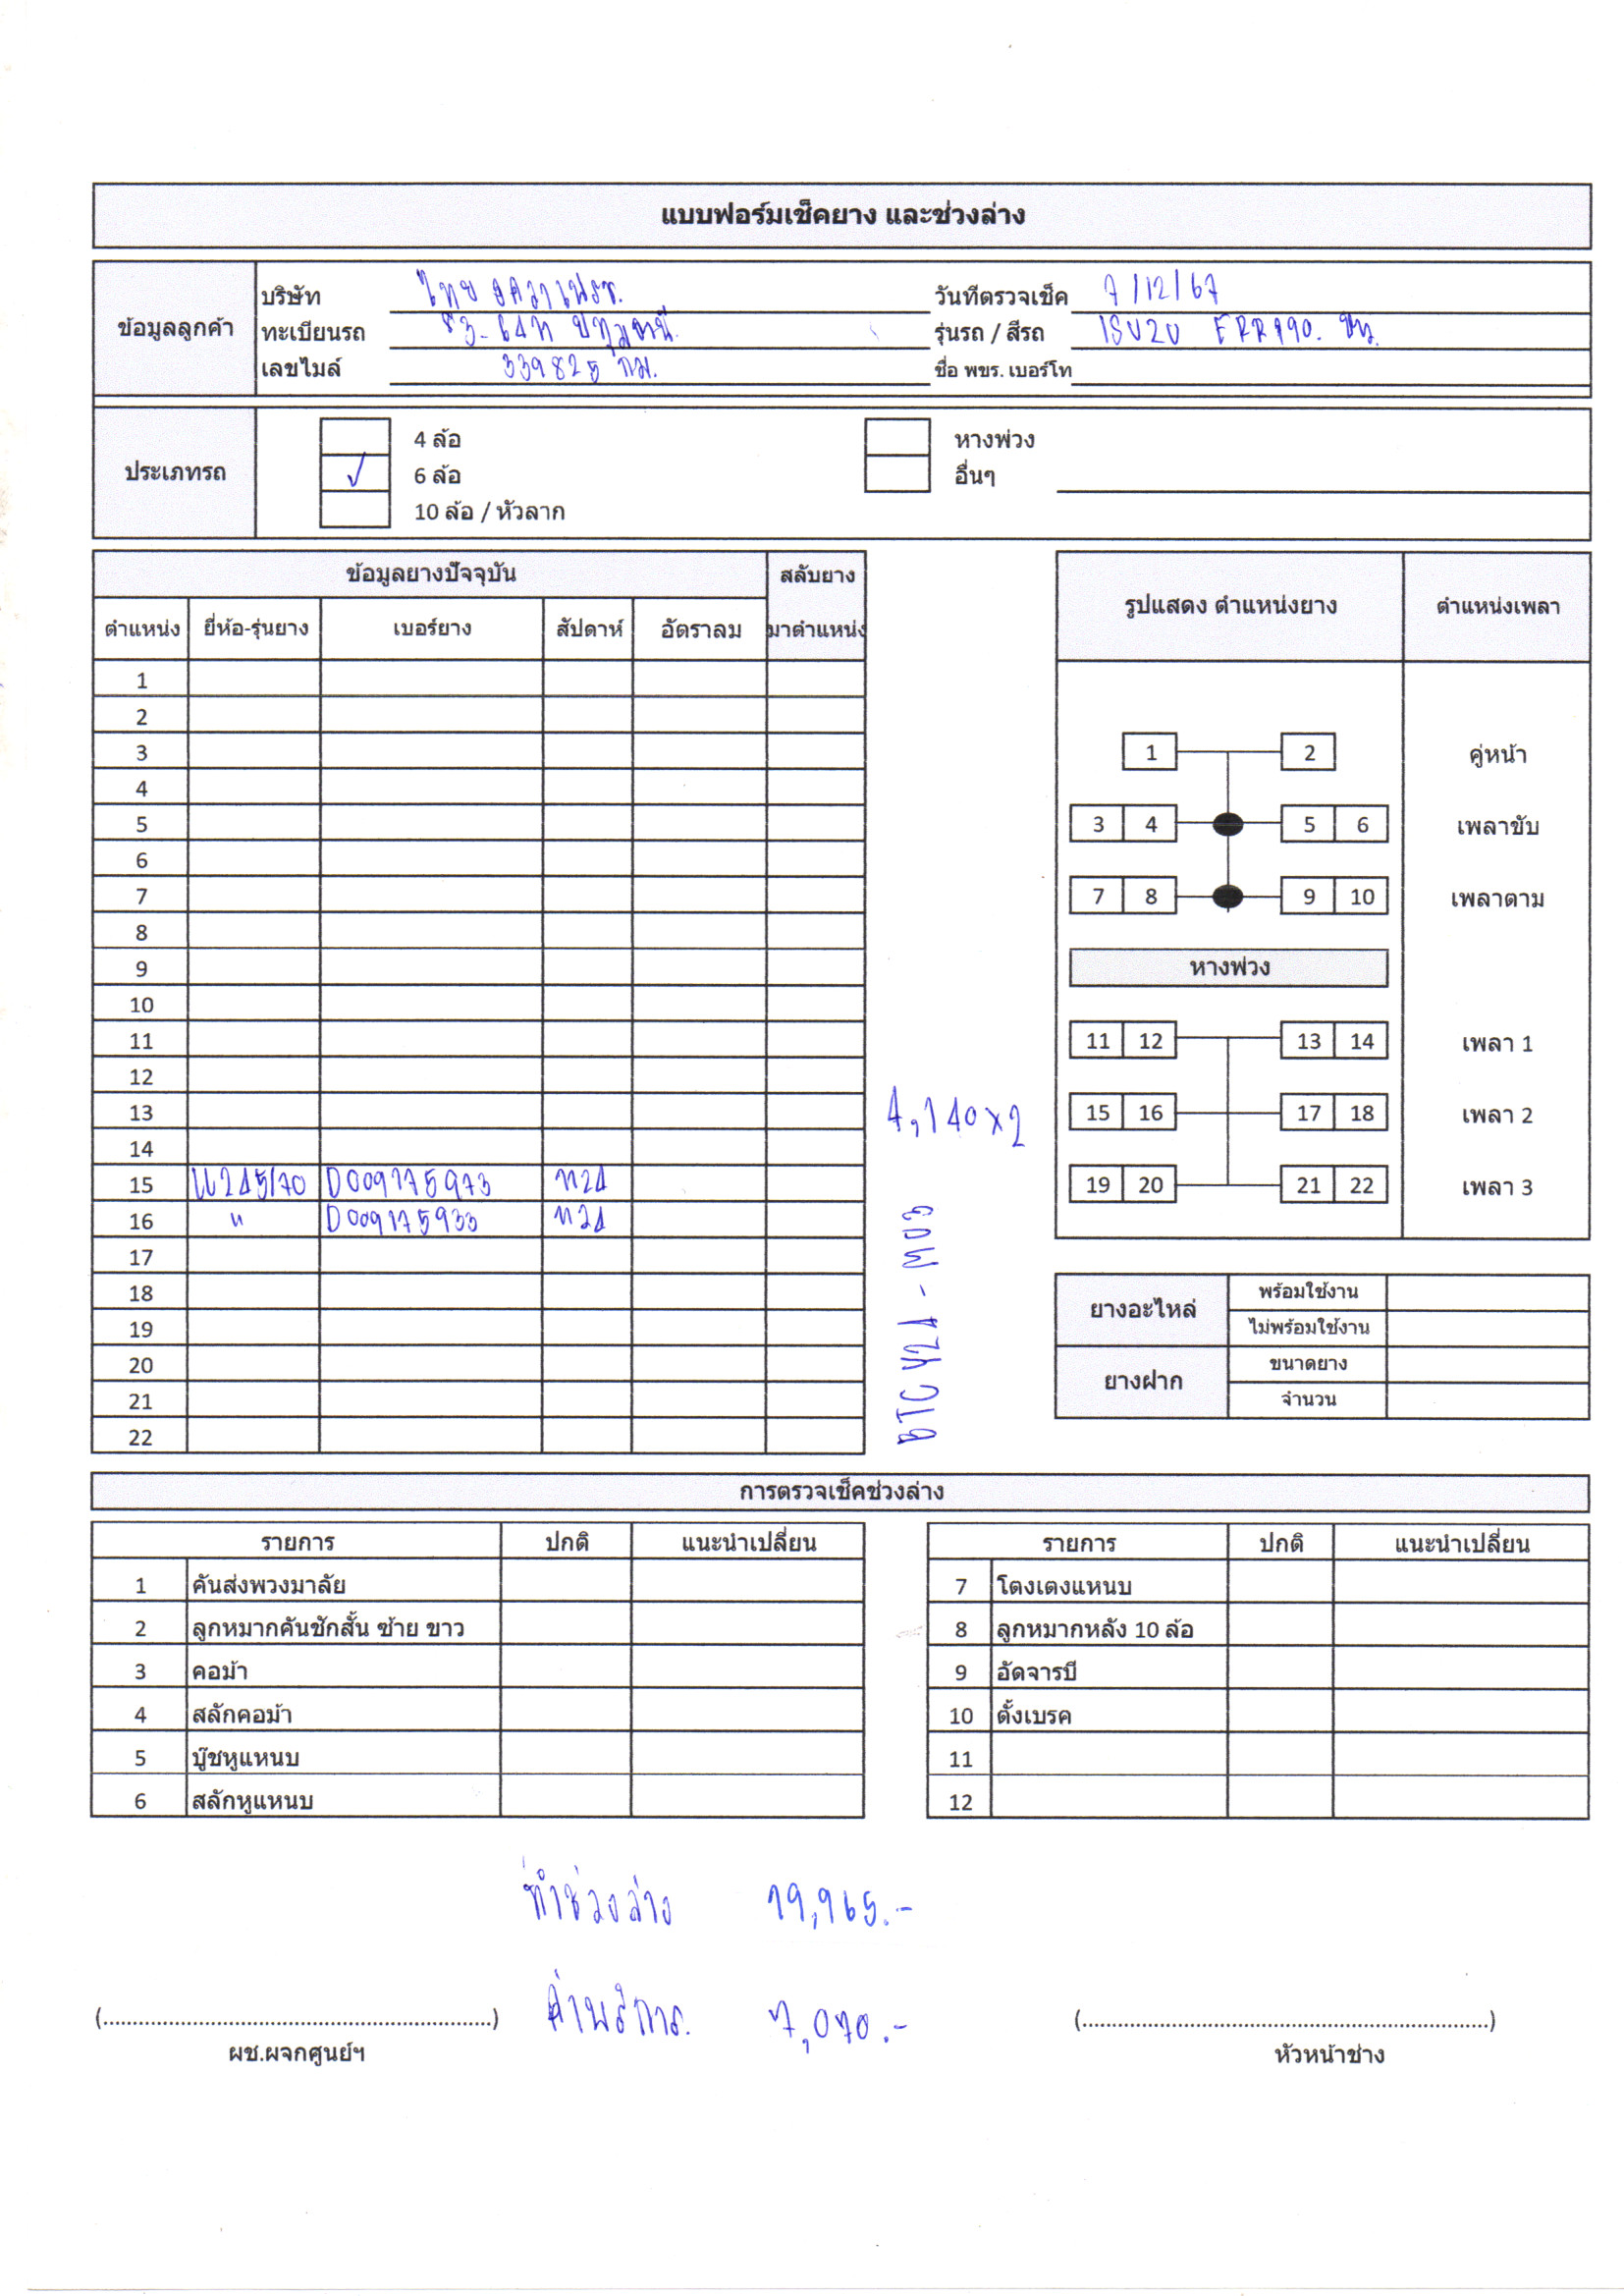 แบบฟอร์มเช็คยาง และช่วงล่าง
ข้อมูลลูกค้า
บริษัท ไทย
วันที่ตรวจเช็ค 7/12/67
ทะเบียนรถ ปทุมธานี
รุ่นรถ / สีรถ ISUZU
เลขไมล์ 339825 กม.
ชื่อ พขร. เบอร์โท
ประเภทรถ
4 ล้อ
หางพ่วง
✓ 6 ล้อ
อื่นๆ
10 ล้อ / หัวลาก
ข้อมูลยางปัจจุบัน สลับยาง
ตำแหน่ง ยี่ห้อ-รุ่นยาง เบอร์ยาง สัปดาห์ อัตราลม มาตำแหน่ง
1
2
3
4
5
6
7
8
9
10
11
12
13
14
15 245/70 D009175973
16 " D009175933
17
18
19
20
21
22
4,140x2
BTC Y24 - M03
รูปแสดง ตำแหน่งยาง ตำแหน่งเพลา
1 2 คู่หน้า
3 4 5 6 เพลาขับ
7 8 9 10 เพลาตาม
หางพ่วง
11 12 13 14 เพลา 1
15 16 17 18 เพลา 2
19 20 21 22 เพลา 3
ยางอะไหล่ พร้อมใช้งาน
ไม่พร้อมใช้งาน
ยางฝาก ขนาดยาง
จำนวน
การตรวจเช็คช่วงล่าง
รายการ ปกติ แนะนำเปลี่ยน
1 คันส่งพวงมาลัย
2 ลูกหมากคันชักสั้น ซ้าย ขาว
3 คอม้า
4 สลักคอม้า
5 บู๊ชหูแหนบ
6 สลักหูแหนบ
รายการ ปกติ แนะนำเปลี่ยน
7 โตงเตงแหนบ
8 ลูกหมากหลัง 10 ล้อ
9 อัดจารบี
10 ตั้งเบรค
11
12
ทำช่วงล่าง 19,965.-
ค่าบริการ. 7,070.-
(..............................................................)
ผช.ผจกศูนย์ฯ
(..............................................................)
หัวหน้าช่าง